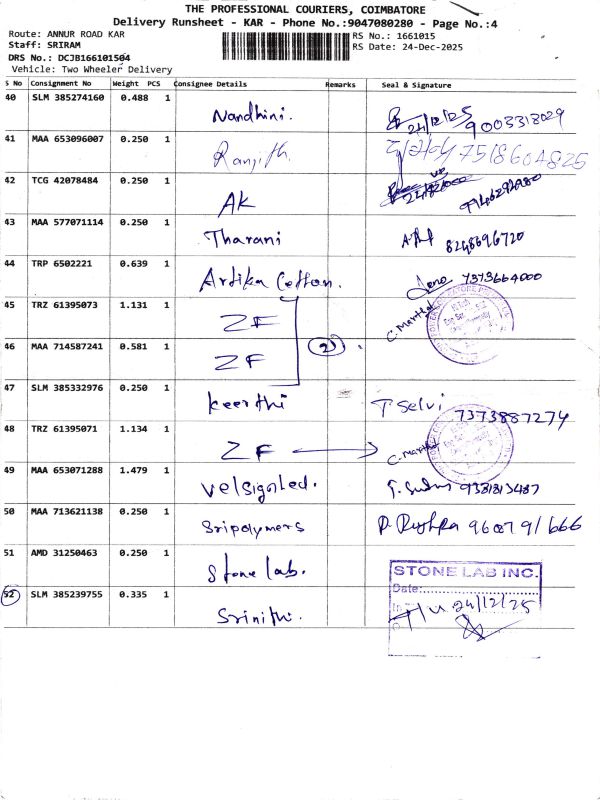 THE PROFESSIONAL COURIERS, COIMBATORE
Delivery Runsheet - KAR - Phone No.:9047080280 - Page No.:4
Route: ANNUR ROAD KAR
Staff: SRIRAM
DRS No.: DCJB166101504
Vehicle: Two Wheeler Delivery
RS No.: 1661015
RS Date: 24-Dec-2025
S No Consignment No Weight PCS Consignee Details Remarks Seal & Signature
40 SLM 385274160 0.488 1 Nandhini. 24/12/25 9003318029
41 MAA 653096007 0.250 1 Ranjith. 7518604825
42 TCG 42078484 0.250 1 AK
43 MAA 577071114 0.250 1 Tharani 8248696720
44 TRP 6502221 0.639 1 Artika Cotton. 7373664000
45 TRZ 61395073 1.131 1 ZF
46 MAA 714587241 0.581 1 ZF 2
47 SLM 385332976 0.250 1 keerthi T Selvi 7373887274
48 TRZ 61395071 1.134 1 ZF
49 MAA 653071288 1.479 1 9381813487
50 MAA 713621138 0.250 1 Sripolymers
51 AMD 31250463 0.250 1 Stone lab.
STONE LAB INC.
Date:
24/12/25
52 SLM 385239755 0.335 1 Srinithi.